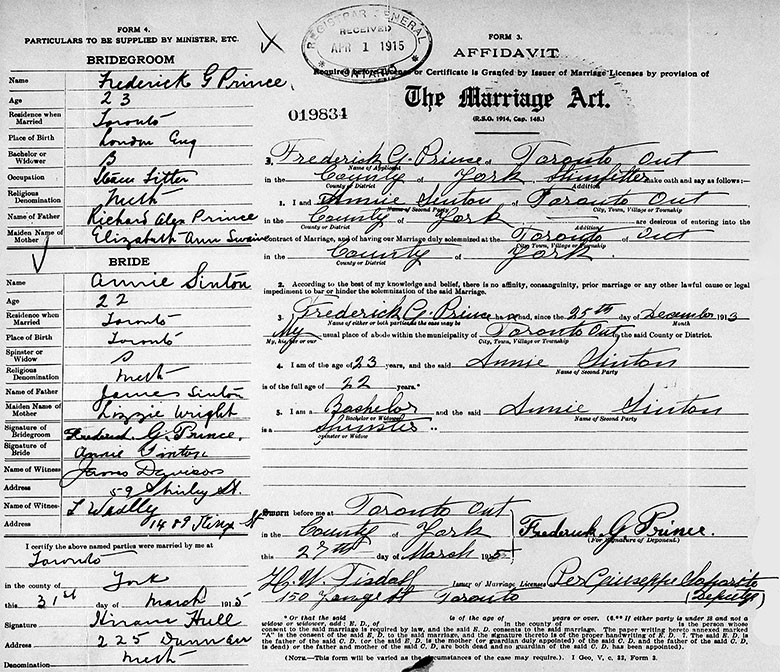 FORM 4.
PARTICULARS TO BE SUPPLIED BY MINISTER, ETC.
BRIDEGROOM
Name Frederick G Prince
Age 23
Residence when Married Toronto
Place of Birth London Eng
Bachelor or Widower B
Occupation Steam Fitter
Religious Denomination Meth
Name of Father Richard Alex Prince
Maiden Name of Mother Elizabeth Ann Swaine
BRIDE
Name Annie Sinton
Age 22
Residence when Married Toronto
Place of Birth Toronto
Spinster or Widow S
Religious Denomination Meth
Name of Father James Sinton
Maiden Name of Mother Lizzie Wright
Signature of Bridegroom Frederick. G. Prince.
Signature of Bride Annie Sinton
Name of Witness James Davison
Address 59 Shirley St.
Name of Witness L
Address 1489 King St
I certify the above named parties were married by me at
Toronto
in the county of York
this 31st day of March 1915
Signature Hull
Address 225
Meth
REGISTRAR GENERAL
RECEIVED
APR 1 1915
ONTARIO
FORM 3.
AFFIDAVIT
Required before License or Certificate is Granted by Issuer of Marriage Licenses by provision of
The Marriage Act.
(R.S.O. 1914, Cap. 148.)
019834
I, Frederick G. Prince of Toronto Ont
Name of Applicant
in the County of York Steamfitter make oath and say as follows:—
County or District Addition
1. I and Annie Sinton of Toronto Ont
Name of Second Party City, Town, Village or Township
in the County of York are desirous of entering into the
County or District Addition
contract of Marriage, and of having our Marriage duly solemnized at the Toronto of Ont
City, Town, Village or Township
in the County of York.
County or District
2. According to the best of my knowledge and belief, there is no affinity, consanguinity, prior marriage or any other lawful cause or legal
impediment to bar or hinder the solemnization of the said Marriage.
3. Frederick G. Prince has had, since the 25th day of December 1913
Name of either or both parties as the case may be Month
My usual place of abode within the municipality of Toronto Ont, the said County or District.
My, his, her or our City, Town, Village or Township
4. I am of the age of 23 years, and the said Annie Sinton
Name of Second Party
is of the full age of 22 years.*
5. I am a Bachelor and the said Annie Sinton
Bachelor or Widower Name of Second Party
is a Spinster
Spinster or Widow
SWORN before me at Toronto Ont
in the County of York
this 27th day of March 1915
Frederick. G Prince.
(For Signature of Deponent.)
H. W. Tisdall Issuer of Marriage Licenses Per Giuseppe
150 Yonge St Toronto (Deputy)
is of the age of years or over. (6.** If either party is under 18 and not a
widow or widower, add: E. D., of in the county of is the person whose
consent to the said marriage is required by law, and the said E. D. consents to the said marriage. The paper writing hereto annexed marked
"A" is the consent of the said E. D. to the said marriage, and the signature thereto is of the proper handwriting of E. D. 7. The said E. D. is
the father of the said C. D. (or the said E. D. is the mother (or guardian duly appointed) of the said C. D., and the father of the said C. D.
is dead) or the father and mother of the said C. D. are both dead and no guardian of the said C. D. has been appointed).
(NOTE.—This form will be varied as the circumstances of the case may require.) 1 Geo. V, c. 32, Form 3.